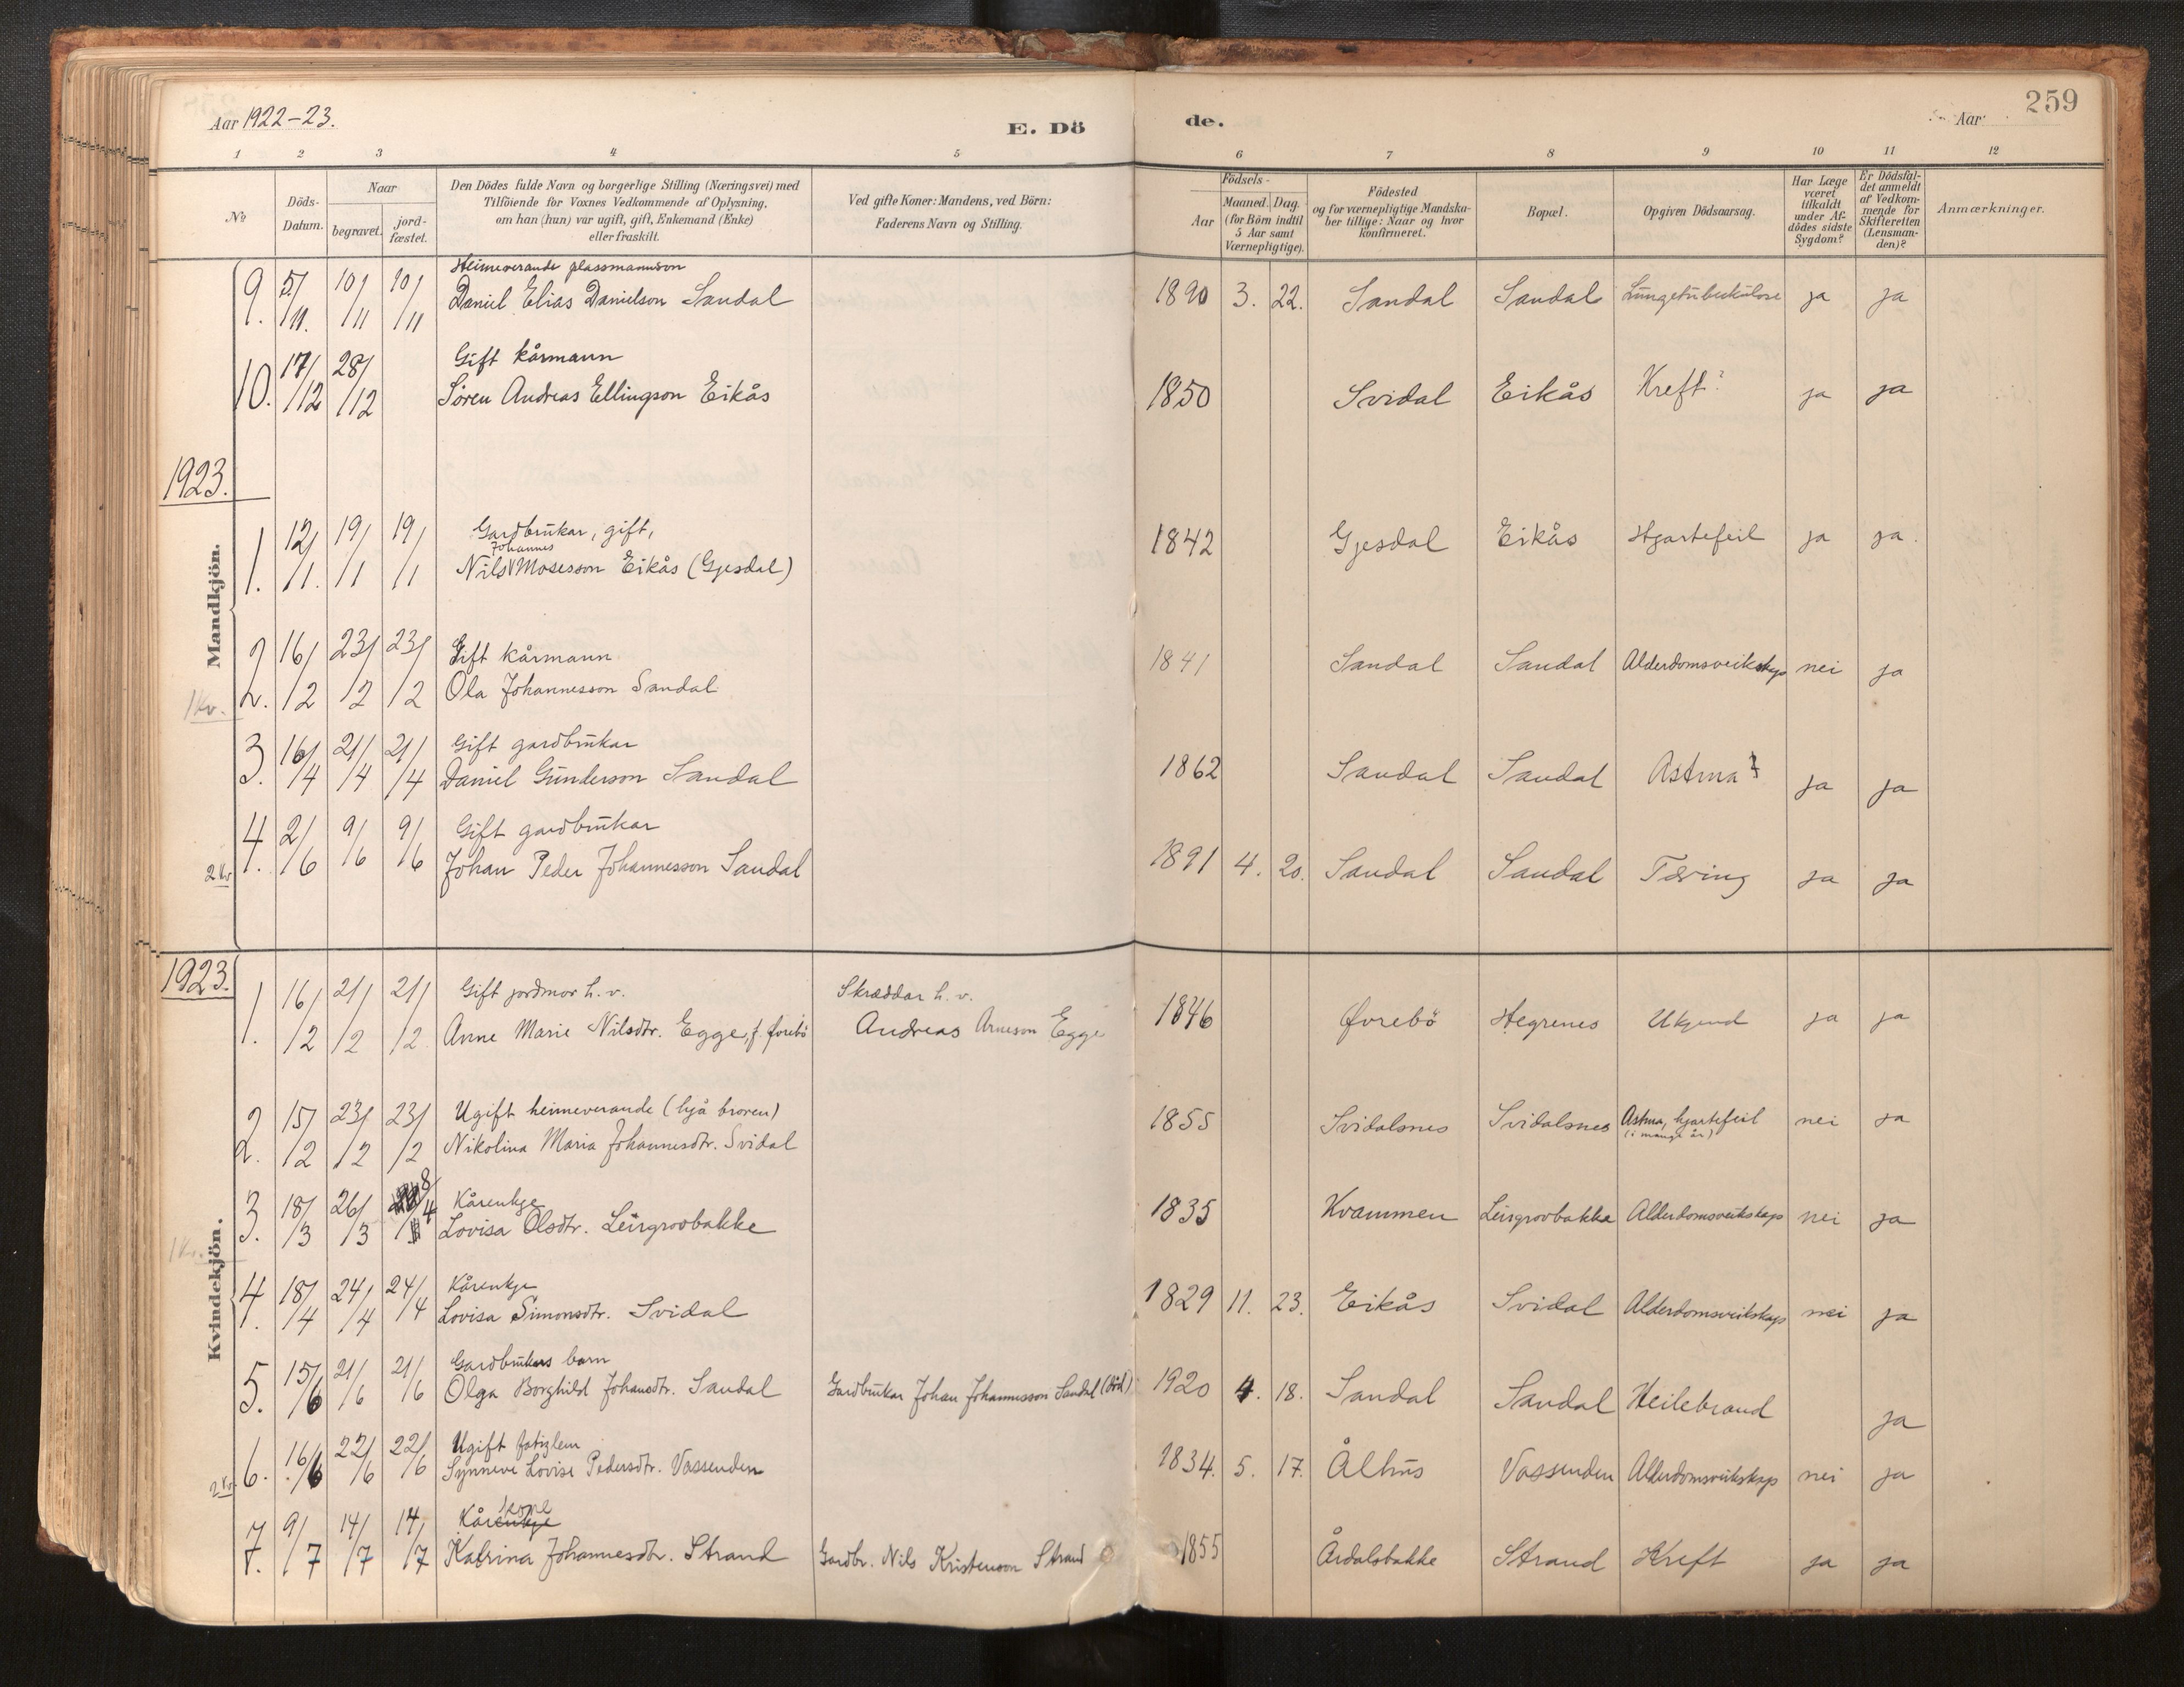 259
Aar 1922-23.
E. Dö
de.
Aar
1 2 3 4 5 6 7 8 9 10 11 12
№
Döds-Datum.
Naar
begravet.
jord-fæstet.
Den Dödes fulde Navn og borgerlige Stilling (Næringsvei) med
Tilföiende for Voxnes Vedkommende af Oplysning,
om han (hun) var ugift, gift, Enkemand (Enke)
eller fraskilt.
Ved gifte Koner: Mandens, ved Börn:
Faderens Navn og Stilling.
Födsels-
Aar
Maaned. Dag.
(for Börn indtil
5 Aar samt
Værnepligtige).
Födested
og for værnepligtige Mandska-
ber tillige: Naar og hvor
konfirmeret.
Bopæl.
Opgiven Dödsaarsag.
Har Læge
været
tilkaldt
under Af-
dödes sidste
Sygdom?
Er Dödsfal-
det anmeldt
af Vedkom-
mende for
Skifteretten
(Lensman-
den)?
Anmærkninger.
Mandkjön.
Heimeverande plassmannson
9. 5/11. 10/11 10/11 Daniel Elias Danielson Sandal 1890 3. 22. Sandal Sandal Lungetuberkulose ja ja
Gift kårmann
10. 17/12 28/12 Sören Andreas Ellingson Eikås 1850 Svidal Eikås Kreft? ja ja
1923.
Gardbrukar, gift,
Johannes
1. 12/1. 19/1 19/1 Nils Mosesson Eikås (Gjesdal) 1842 Gjesdal Eikås Hjartefeil ja ja.
Gift kårmann
2. 16/2 23/2 23/2 Ola Johannesson Sandal 1841 Sandal Sandal Alderdomsveikskap nei ja
1 kv.
Gift gardbrukar
3. 16/4 21/4 21/4 Daniel Gunderson Sandal 1862 Sandal Sandal Astma ja ja
Gift gardbrukar
4. 2/6 9/6 9/6 Johan Peder Johannesson Sandal 1891 4. 20. Sandal Sandal Tæring ja ja
2 kv
1923.
Kvindekjön.
Gift jordmor h. v. Skræddar h. v.
1. 16/2 21/2 21/2 Anne Marie Nilsdtr. Egge, f. Øvrebö Andreas Arneson Egge 1846 Øvrebö Hegrenes Ukjend ja ja
Ugift heimeverande (hjå broren)
2. 15/2 23/2 23/2 Nikolina Maria Johannesdtr. Svidal 1855 Svidalsnes Svidalsnes Astma, hjartefeil nei ja
(i mange år)
Kårenkje
3. 18/3 26/3 8/4 Lovisa Olsdtr. Leirgrovbakke 1835 Kvammen Leirgrovbakke Alderdomsveikskap nei ja
1 kv.
Kårenkje
4. 18/4 24/4 24/4 Lovisa Simonsdtr. Svidal 1829 11. 23. Eikås Svidal Alderdomsveikskap nei ja
Gardbrukars barn
5. 15/6 21/6 21/6 Olga Borghild Johansdtr. Sandal Gardbrukar Johan Johannesson Sandal (död) 1920 4. 18. Sandal Sandal Heilebrand ja
Ugift fatiglem
6. 16/6 22/6 22/6 Synneve Lovise Pedersdtr. Vassenden 1834. 5. 17. Ålhus Vassenden Alderdomsveikskap nei ja
2 kv.
kone
Kårenkje
7. 9/7 14/7 14/7 Katrina Johannesdtr. Strand Gardbr. Nils Kristenson Strand 1855 Årdalsbakke Strand Kreft ja ja